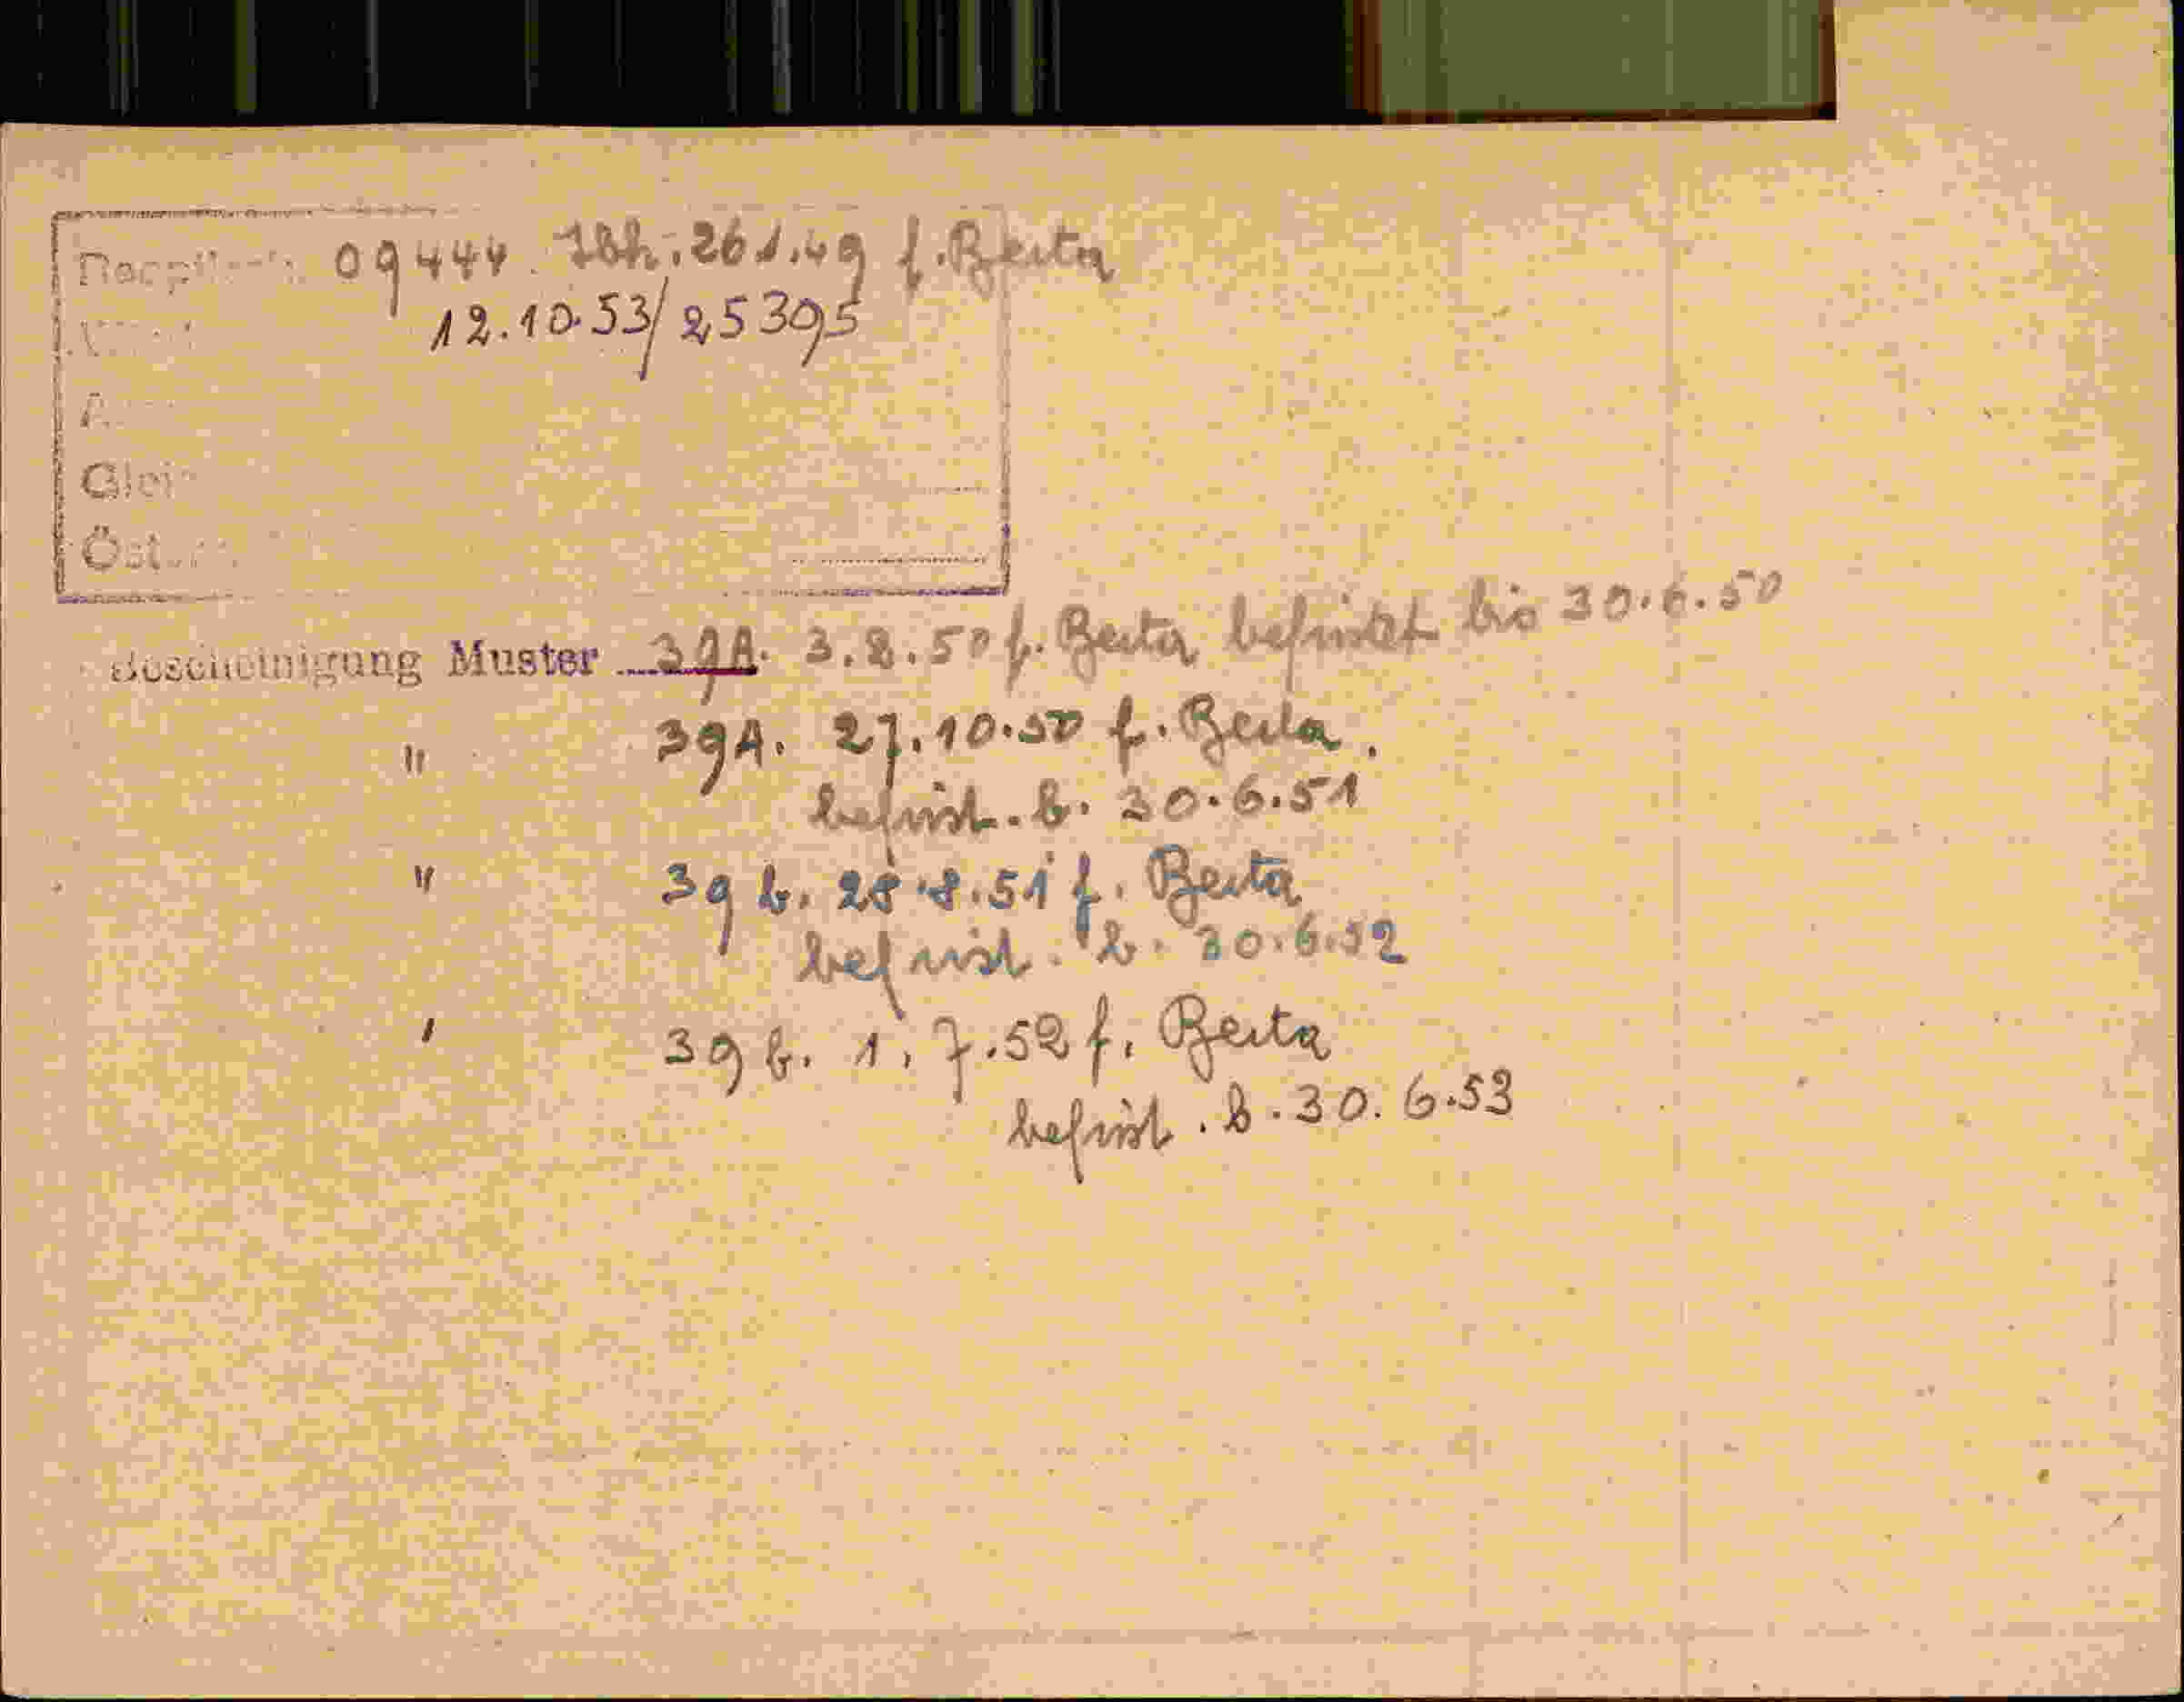 09444. Jbh. 26 1. 49 f. Berta
12.10.53/25395
Bescheinigung Muster 39A. 3.8.50 f. Berta befristet bis 30.6.50
" 39A. 27.10.50 f. Berta.
befrist. b. 30.6.51
" 39 b. 28.8.51 f. Berta
befrist. b. 30.6.52
' 39 b. 1.7.52 f. Berta
befrist. b. 30.6.53